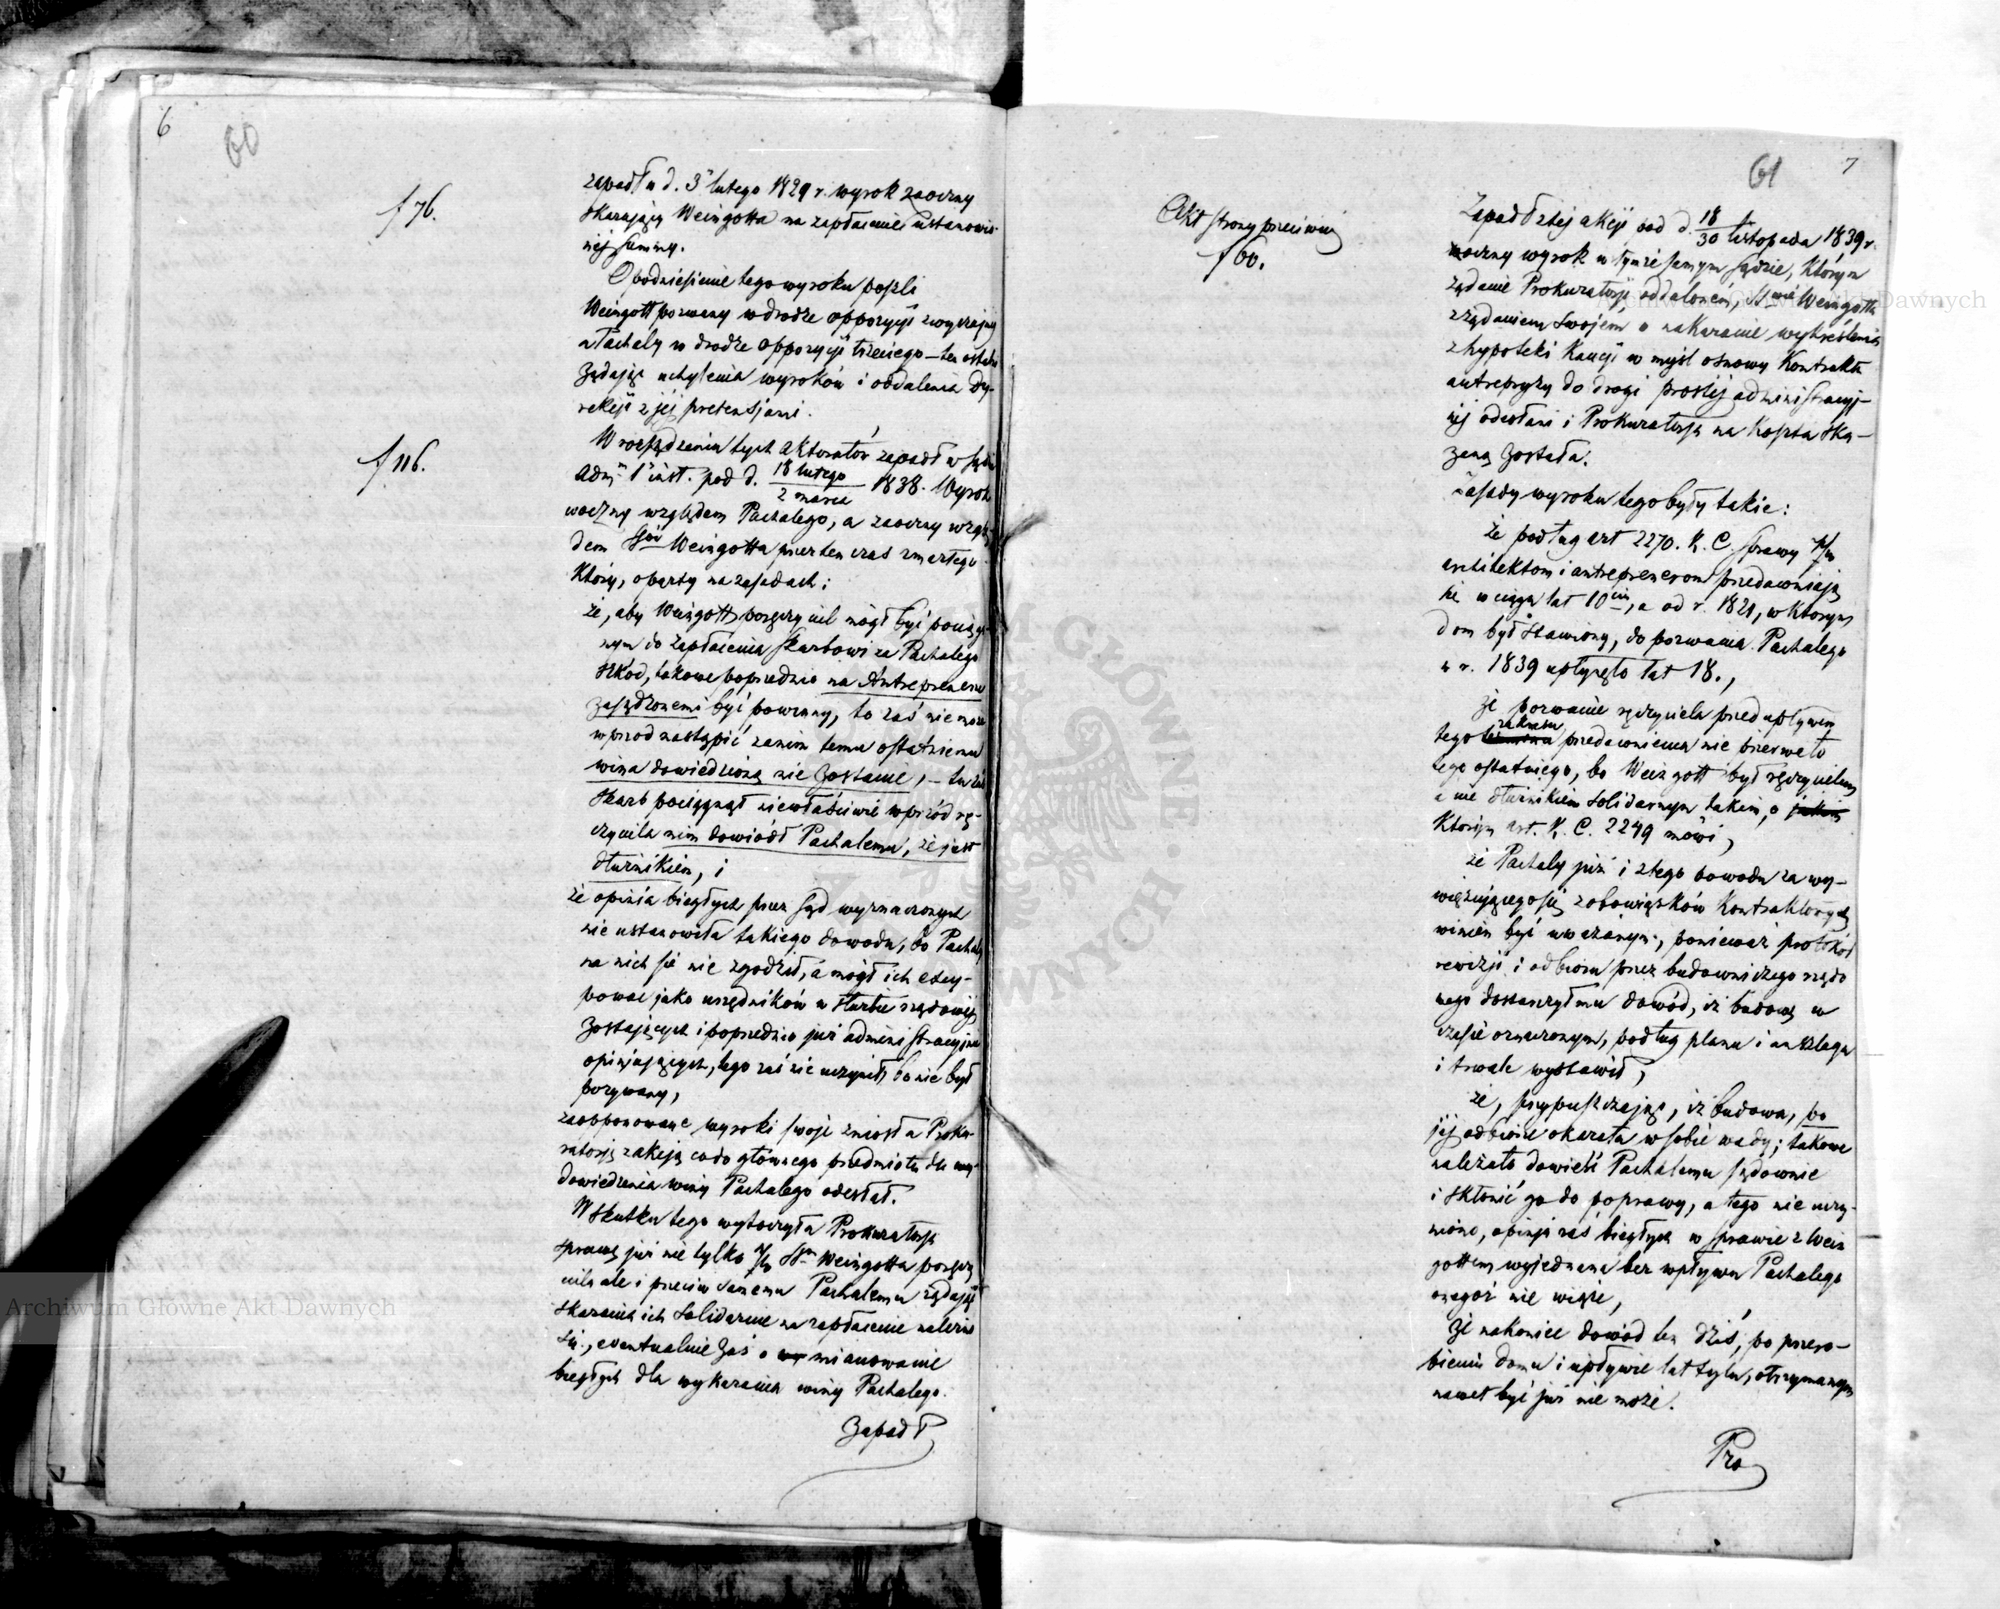 6
60
f 76.
f 116.
zapadł u d. 3 lutego 1829 r. wyrok zaoczny
skazujący Weingotta na zapłacenie ustanowio-
nej summy.
O podniesienie tego wyroku poszli
Weingott pozwany w drodze oppozycji zwyczajnej
a Pachaly w drodze oppozycji trzeciego – ten ostatni
żądając uchylenia wyroków i oddalenia Dy-
rekcji z jej pretensjami.
W rozsądzeniu tych aktoratów zapadł w sądzie
Adm. 1 inst. pod d. 18 lutego / 2 marca 1838. Wyrok
oczny względem Pachalego, a zaoczny wzglę-
dem Weingotta przez ten czas zmarłego
Który, oparty na zasadach:
że, aby Weingott poręczyciel mógł być pociągn-
nym do zapłacenia skarbowi za Pachalego
szkod, takowe poprzednio na Antreprenerze
zasądzonemi być powinny, to zaś nie może
wprzod nastąpić zanim temu ostatniemu
wina dowiedzioną nie zostanie, – tu zaś
skarb pociągnął niewłaściwie wprzód rę-
czyciela nim dowiódł Pachalemu, że jest
dłużnikiem, i
że opinia biegłych przez sąd wyznaczonych
nie ustanowiła takiego dowodu, bo Pachaly
na nich się nie zgodził, a mógł ich excy-
powac jako urzędników w służbie rządowej
zostających i poprzednio już administracyjnie
opinjujących, tego zaś nie uczynił, bo nie był
pozywany,
zaopponowane wyroki swoje zniósł a Proku-
ratorją z akcją co do głównego przedmiotu dla
dowiedzenia winy Pachalego odesłał.
W skutku tego wytoczyła Prokuratorja
sprawę już nie tylko Weingotta poręczy
ciela ale i przeciw samemu Pachalemu żądając
skazania ich solidarnie na zapłacenie należno
ści, eventualnie zaś o mianowanie
biegłych dla wykazania winy Pachalego.
Zapadł
61
7
Akt strony przeciwnej
f 60.
Zapadł z tej akcji pod d. 18/30 listopada 1839 r.
oczny wyrok w tymże samym sądzie, którym
żądanie Prokuratorji oddalonem, Weingotta
z żądaniem swojem o nakazanie wykreślenia
z hypoteki Kaucji w myśl osnowy Kontraktu
antrepryzy do drogi prostej administracyj-
nej odesłani i Prokuratorja na koszta ska-
zaną została.
Zasady wyroku tego były takie:
że podług art 2270. K. C. sprawy
architektom i antreprenerom przedawniają
się w ciągu lat 10, a od r. 1821, w którym
dom był stawiony, do pozwania Pachalego
w r. 1839 upłynęło lat 18.,
że pozwanie ręczyciela przed upływem
tego zakresu przedawnienia nie przerwało
tego ostatniego, bo Weingott był ręczycielem
a nie dłużnikiem solidarnym takim, o
którym art. K. C. 2249 mówi,
że Pachaly już i z tego powodu za wy-
więzującego się z obowiązków Kontraktowych
winien być uważanym, ponieważ protokół
rewizji i odbioru przez budowniczego rządo
wego dostarczył mu dowód, iż budowę w
czasie oznaczonym, podług planu i anszlagu
i trwale wystawił,
że, przypuszczając, iż budowa, po
jej odbiorze okazała w sobie wady; takowe
należało dowieść Pachalemu sądownie
i skłonić go do poprawy, a tego nie uczy-
niono, opinja zaś biegłych w sprawie z Wein
gottem wyjednana bez wpływu Pachalego
onegoż nie wiąże,
że nakoniec dowód ten dziś, po przero-
bieniu domu i upływie lat tylu, otrzymanym
nawet być już nie może.
Pro
Archiwum Główne Akt Dawnych
Archiwum Główne Akt Dawnych